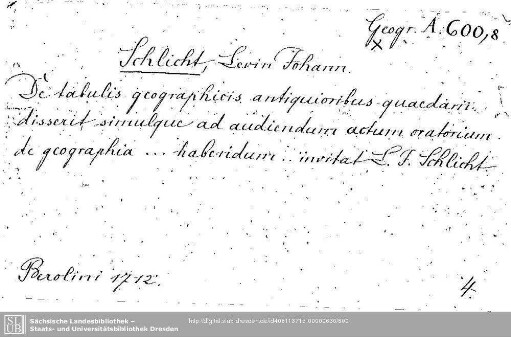 Geogr. A. 600,8
x
Schlicht, Levin Johann.
De tabulis geographicis antiquioribus quaedam
disserit simulque ad audiendum actum oratorium
de geographia ... habendum .. invitat L. J. Schlicht
Berolini 1712.
4.
Sächsische Landesbibliothek –
Staats- und Universitätsbibliothek Dresden